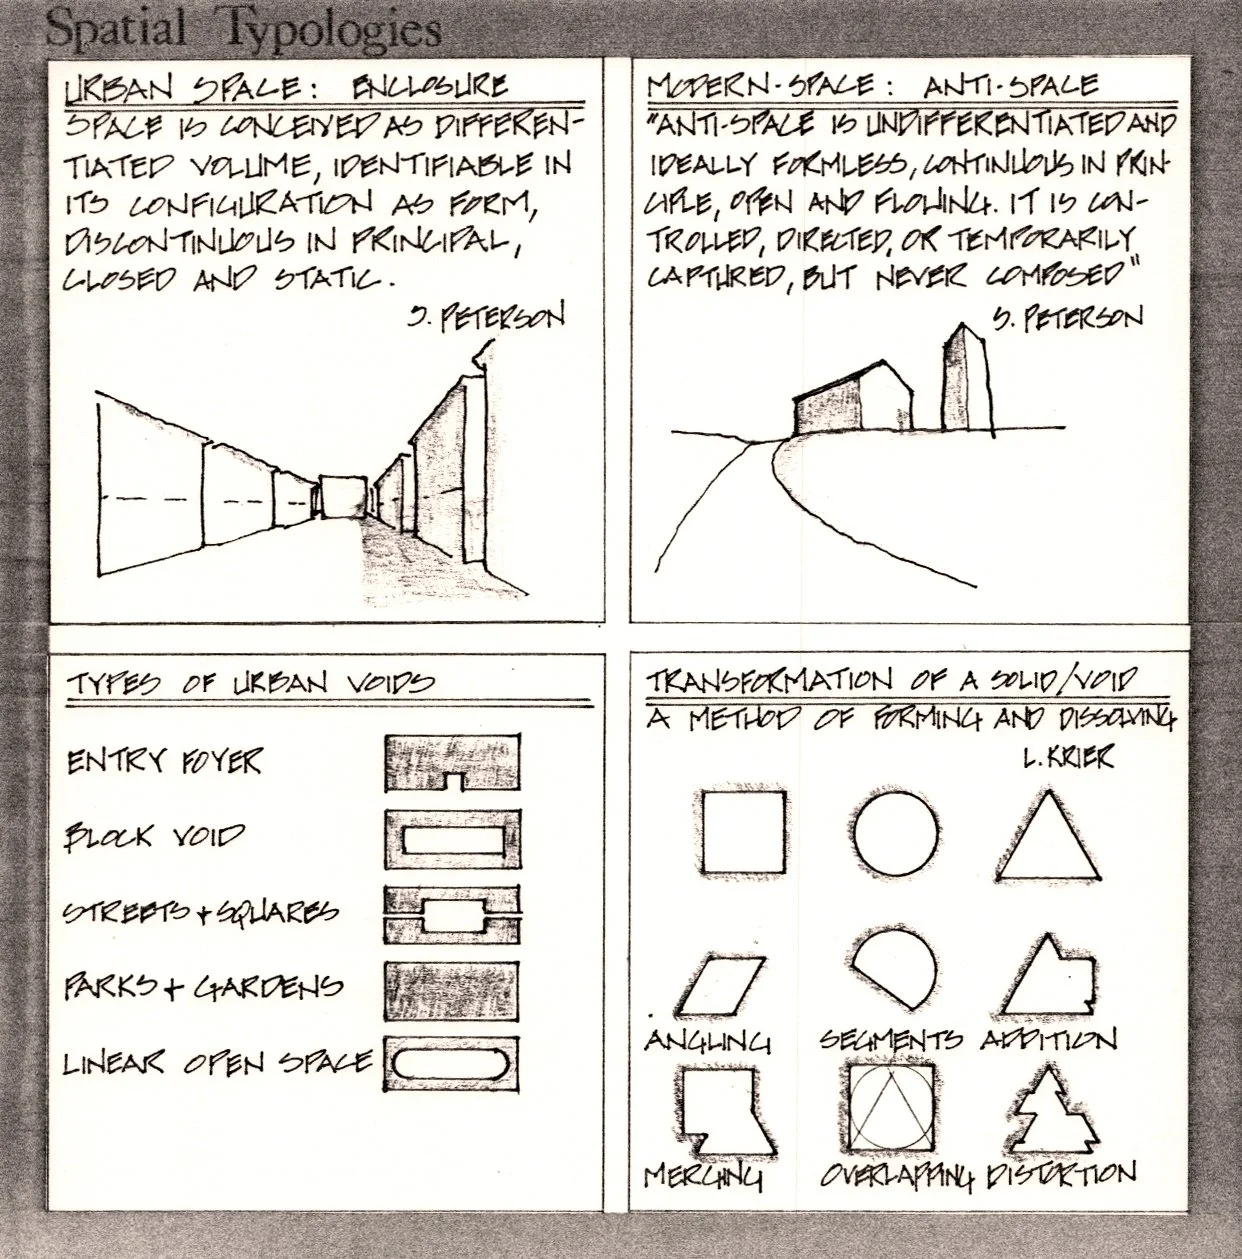 Spatial Typologies
URBAN SPACE: ENCLOSURE
SPACE IS CONCEIVED AS DIFFEREN-
TIATED VOLUME, IDENTIFIABLE IN
ITS CONFIGURATION AS FORM,
DISCONTINUOUS IN PRINCIPAL,
CLOSED AND STATIC.
S. PETERSON
MODERN-SPACE: ANTI-SPACE
"ANTI-SPACE IS UNDIFFERENTIATED AND
IDEALLY FORMLESS, CONTINUOUS IN PRIN-
CIPLE, OPEN AND FLOWING. IT IS CON-
TROLLED, DIRECTED, OR TEMPORARILY
CAPTURED, BUT NEVER COMPOSED"
S. PETERSON
TYPES OF URBAN VOIDS
ENTRY FOYER
BLOCK VOID
STREETS + SQUARES
PARKS + GARDENS
LINEAR OPEN SPACE
TRANSFORMATION OF A SOLID/VOID
A METHOD OF FORMING AND DISSOLVING
L. KRIER
ANGLING SEGMENTS ADDITION
MERGING OVERLAPPING DISTORTION